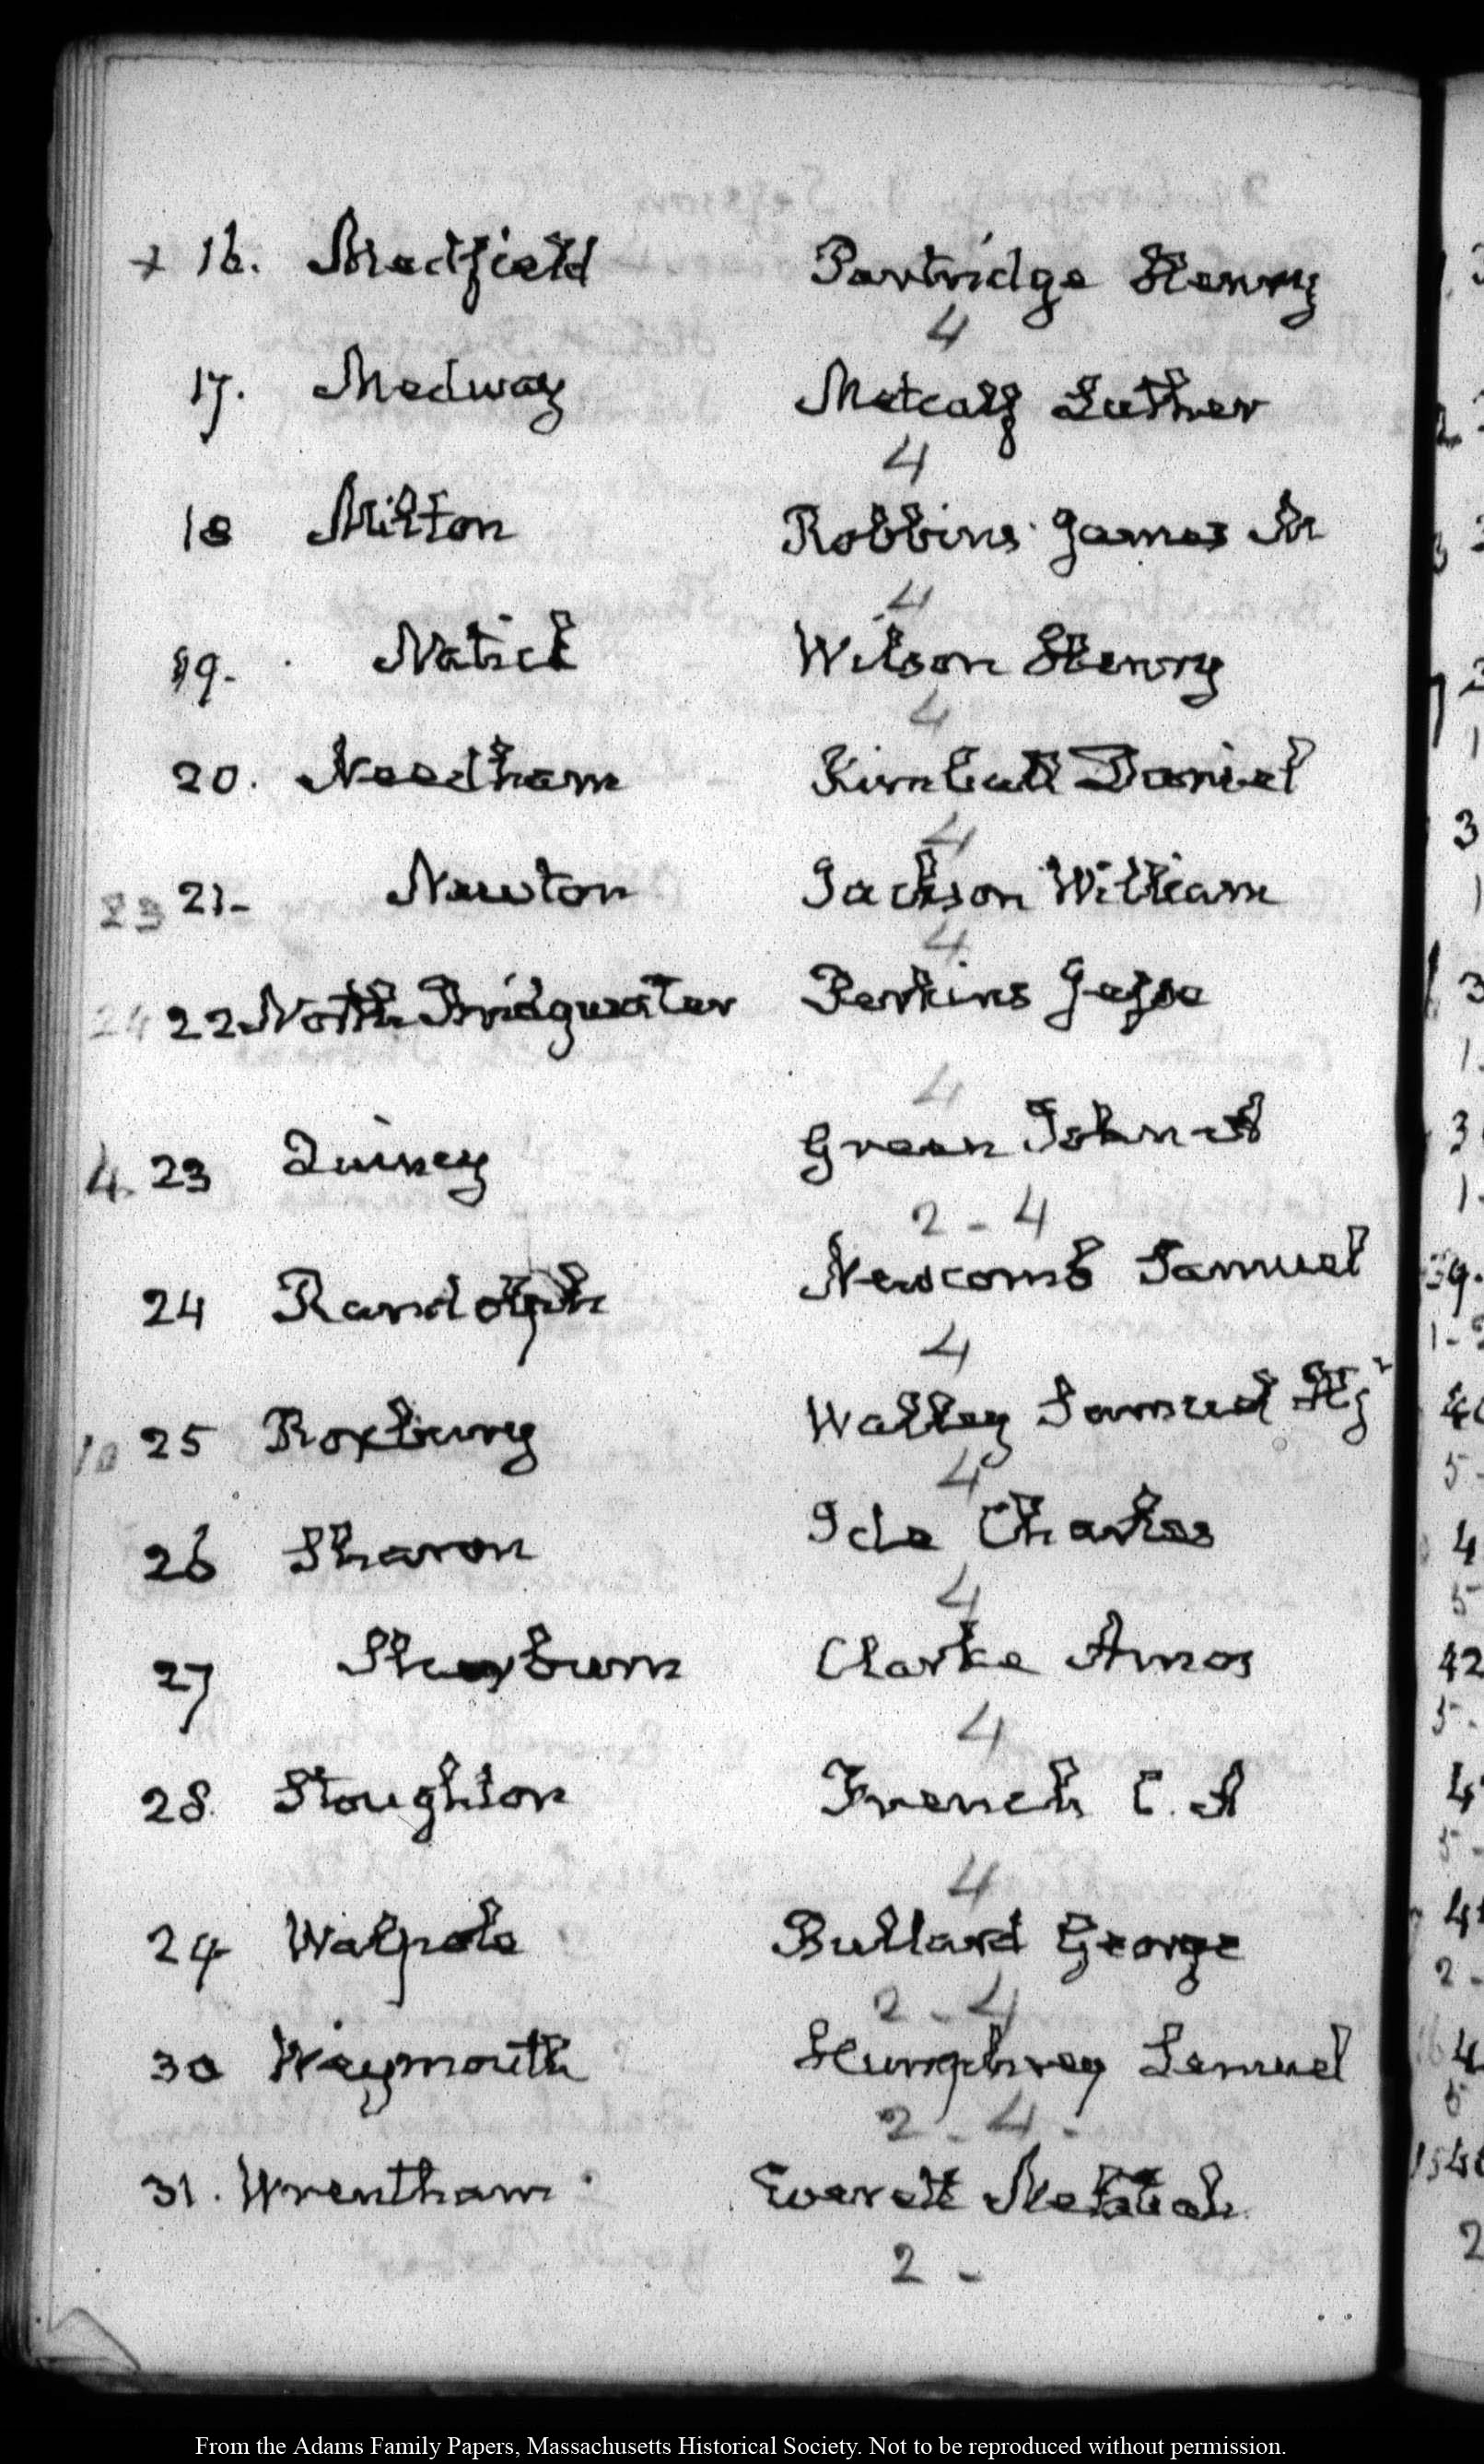 + 16. Medfield Partridge Henry
4
17. Medway Metcalf Luther
4
18 Milton Robbins James M
4
19. Natick Wilson Henry
4
20. Needham Kimball Daniel
4
23 21- Newton Jackson William
4
24 22 North Bridgwater Perkins Jesse
4
4. 23 Quincy Green John A
2 - 4
24 Randolph Newcomb Samuel
4
10 25 Roxbury Walley Samuel H jr
4
26 Sharon Ide Charles
4
27 Sherburn Clarke Amos
4
28. Stoughton French C. A
4
29 Walpole Bullard George
2 - 4
30 Weymouth Humphrey Lemuel
2 - 4 -
31. Wrentham Everett Meletiah
2 -
From the Adams Family Papers, Massachusetts Historical Society. Not to be reproduced without permission.